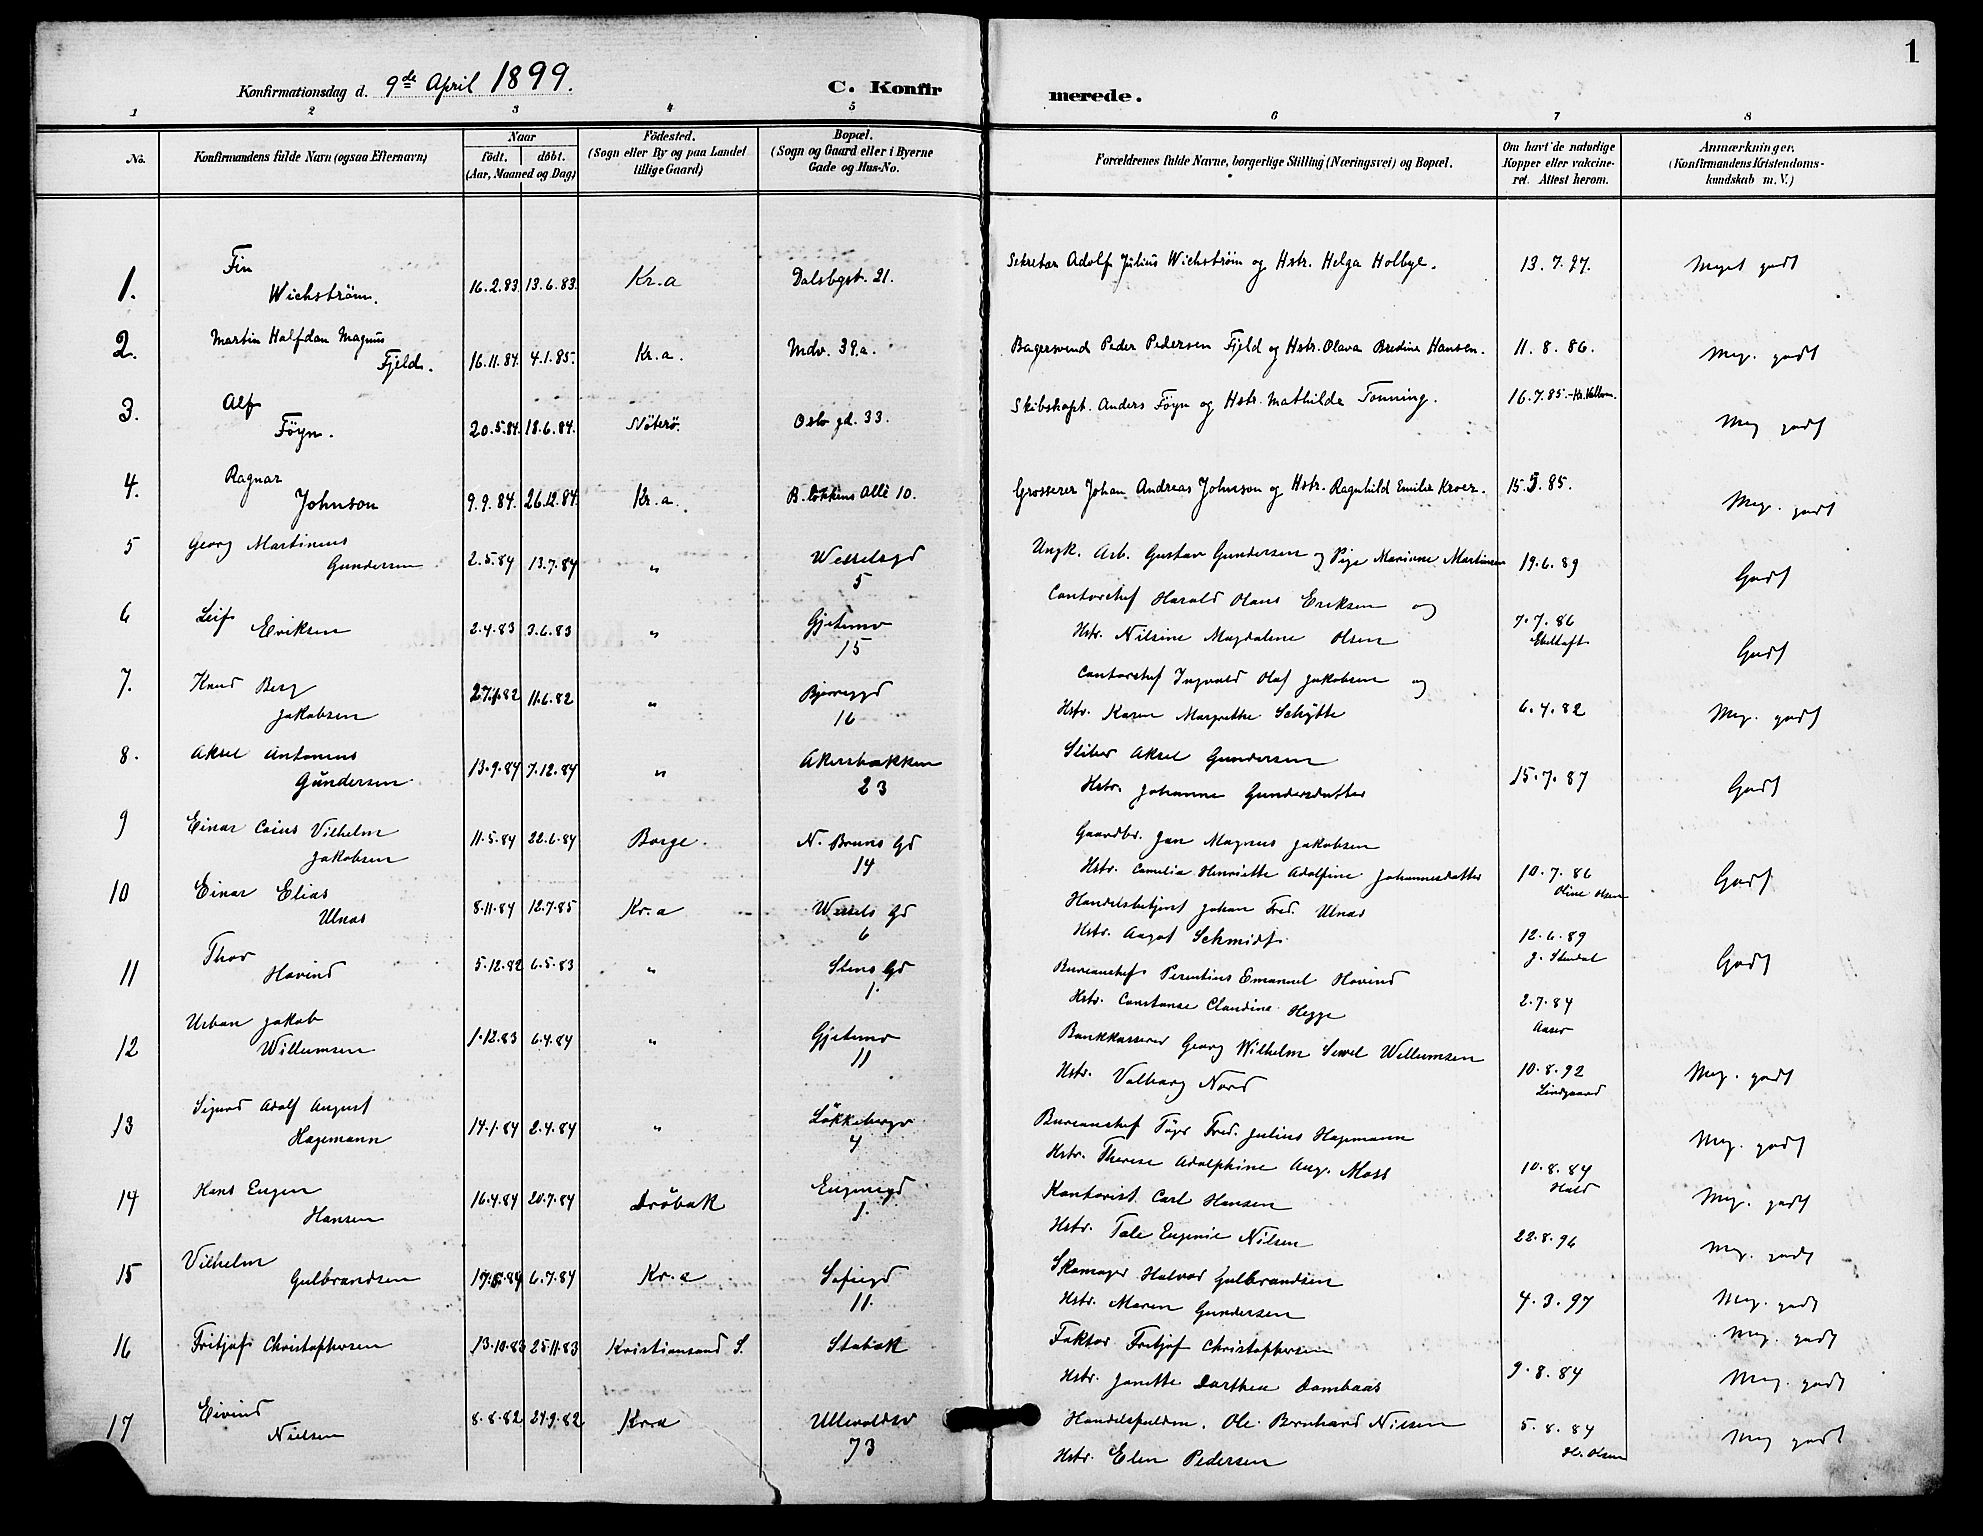 1
Konfirmationsdag d. 9de April 1899.
C. Konfirmerede.
1 2 3 4 5 6 7 8
No. Konfirmandens fulde Navn (ogsaa Efternavn) Naar födt. döbt. (Aar, Maaned og Dag) Födested. (Sogn eller By og paa Landet tillige Gaard) Bopæl. (Sogn og Gaard eller i Byerne Gade og Hus-No. Forældrenes fulde Navne, borgerlige Stilling (Næringsvei) og Bopæl. Om havt de naturlige Kopper eller vakcineret. Attest herom. Anmærkninger. (Konfirmandens Kristendomskundskab m. V.)
1. Fin Wichstrøm. 16.2.83 13.6.83. Kr.a Dalsbgst. 21. Sekretær Adolf Julius Wichstrøm og Hstr. Helga Holbye. 13.7.97. Meget godt
2. Martin Halfdan Magnus Fjeld. 16.11.84. 4.1.85. Kr.a. Mdv. 39.a. Bagersvend Peder Pedersen Fjeld og Hstr. Olava Bredine Hansen. 11.8.86. Meg. godt
3. Alf Föyn. 20.5.84. 18.6.84. Nöterö. Oslo gd. 33. Skibskapt. Anders Föyn og Hstr. Mathilde Tonning. 16.7.85. Meg godt
4. Ragnar Johnson 9.9.84. 26.12.84. Kr.a. B.lökkens Allé 10. Grosserer Johan Andreas Johnson og Hstr. Ragnhild Emilie Kroer. 15.5.85. Meg. godt
5 Georg Martinius Gundersen 2.5.84 13.7.84 " Wesselsgd 5 Ungk. Arb. Gustav Gundersen og Pige Mariane Martinsen 19.6.89 Godt
6 Leif Eriksen 2.4.83 3.6.83 " Gjetemv 15 Contorchef Harald Hans Eriksen og
Hstr. Nilsine Magdalene Olsen 7.7.86 Ebeltoft Godt
7. Knud Berg Jakobsen 27.1.82 11.6.82 " Bjerregd 16 Contorchef Ingvald Olaf Jakobsen og
Hstr. Karen Margrethe Schytte 6.4.82 Meg. godt
8. Aksel Antonius Gundersen 13.9.84 7.12.84 " Akersbakken 23 Sliber Aksel Gundersen
Hstr. Johanne Gundersdatter 15.7.87 Godt
9 Einar Caius Vilhelm Jakobsen 11.5.84 22.6.84 Borge. N. Bruns Gd 14 Gaardbr. Jan Magnus Jakobsen
Hstr. Camelia Henriette Adolfine Johannesdatter 10.7.86 Oline Olsen Godt
10 Einar Elias Ulnas 8.11.84 12.7.85 Kr.a Wessels Gd 6 Handelsbetjent Johan Fred. Ulnas
Hstr. Aagot Schmidt. 12.6.89 J. Stendal Godt
11 Thor Hovind 5.12.82 6.5.83 " Stens Gd 1. Bureauchef Perentius Emanuel Hovind
Hstr. Constanse Claudine Hegge 2.7.84 Aaser
12 Urban Jakob Willumsen 1.12.83 6.4.84 " Gjetemv 11 Bankkasserer Georg Wilhelm Sewel Willumsen
Hstr. Valborg Nord 10.8.92 Lindgaard Meg. godt
13 Sigurd Adolf August Hagemann 14.1.84 2.4.84 " Løkkebergv 4 Bureauchef Töger Fred. Julius Hagemann
Hstr. Therese Adolphine Aug. Moss 10.8.84 Hald Meg. godt
14 Hans Eugen Hansen 16.4.84 20.7.84 Dröbak Eugenigd 1. Kontorist Carl Hansen
Hstr. Tale Eugenie Nilsen 22.8.96 Meg. godt
15 Vilhelm Gulbrandsen 6.7.84 Kr.a Sofiegd 11. Skomager Halvor Gulbrandsen Meg. godt
Hstr. Maren Gundersen 4.3.97 Meg. godt
16 Fritjof Christophersen 13.10.83 25.11.83 Kristiansand S. Stabæk Faktor Fritjof Christophersen Meg. godt
Hstr. Janette Dorthea Dombaas 9.8.84 Meg. godt
17 Eivind Nielsen 8.8.82 24.9.82 Kr.a Ullevoldsv 73 Handelsfuldm. Ole Bernhard Nilsen
Hstr. Elen Pedersen 5.8.84 Ol. Olsen Meg godt